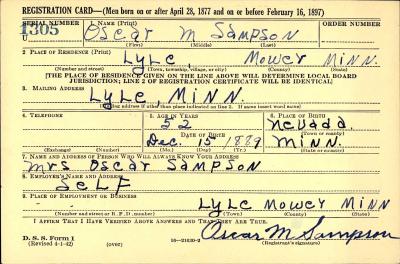 REGISTRATION CARD—(Men born on or after April 28, 1877 and on or before February 16, 1897)
SERIAL NUMBER 1. NAME (Print) ORDER NUMBER
U 1305 Oscar M Sampson
(First) (Middle) (Last)
2. PLACE OF RESIDENCE (Print)
Lyle, Mower Minn.
(Number and street) (Town, township, village, or city) (County) (State)
[THE PLACE OF RESIDENCE GIVEN ON THE LINE ABOVE WILL DETERMINE LOCAL BOARD
JURISDICTION; LINE 2 OF REGISTRATION CERTIFICATE WILL BE IDENTICAL]
3. MAILING ADDRESS
Lyle, Minn.
[Mailing address if other than place indicated on line 2. If same insert word same]
4. TELEPHONE 5. AGE IN YEARS 6. PLACE OF BIRTH
52 Nevada.
DATE OF BIRTH (Town or county)
Dec. 15 1889 Minn.
(Exchange) (Number) (Mo.) (Day) (Yr.) (State or country)
7. NAME AND ADDRESS OF PERSON WHO WILL ALWAYS KNOW YOUR ADDRESS
Mrs Oscar Sampson
8. EMPLOYER'S NAME AND ADDRESS
Self
9. PLACE OF EMPLOYMENT OR BUSINESS
Lyle Mower Minn
(Number and street or R. F. D. number) (Town) (County) (State)
I AFFIRM THAT I HAVE VERIFIED ABOVE ANSWERS AND THAT THEY ARE TRUE.
Oscar M Sampson
D. S. S. Form 1
(Revised 4-1-42) (over) 16—21630-2 (Registrant's signature)